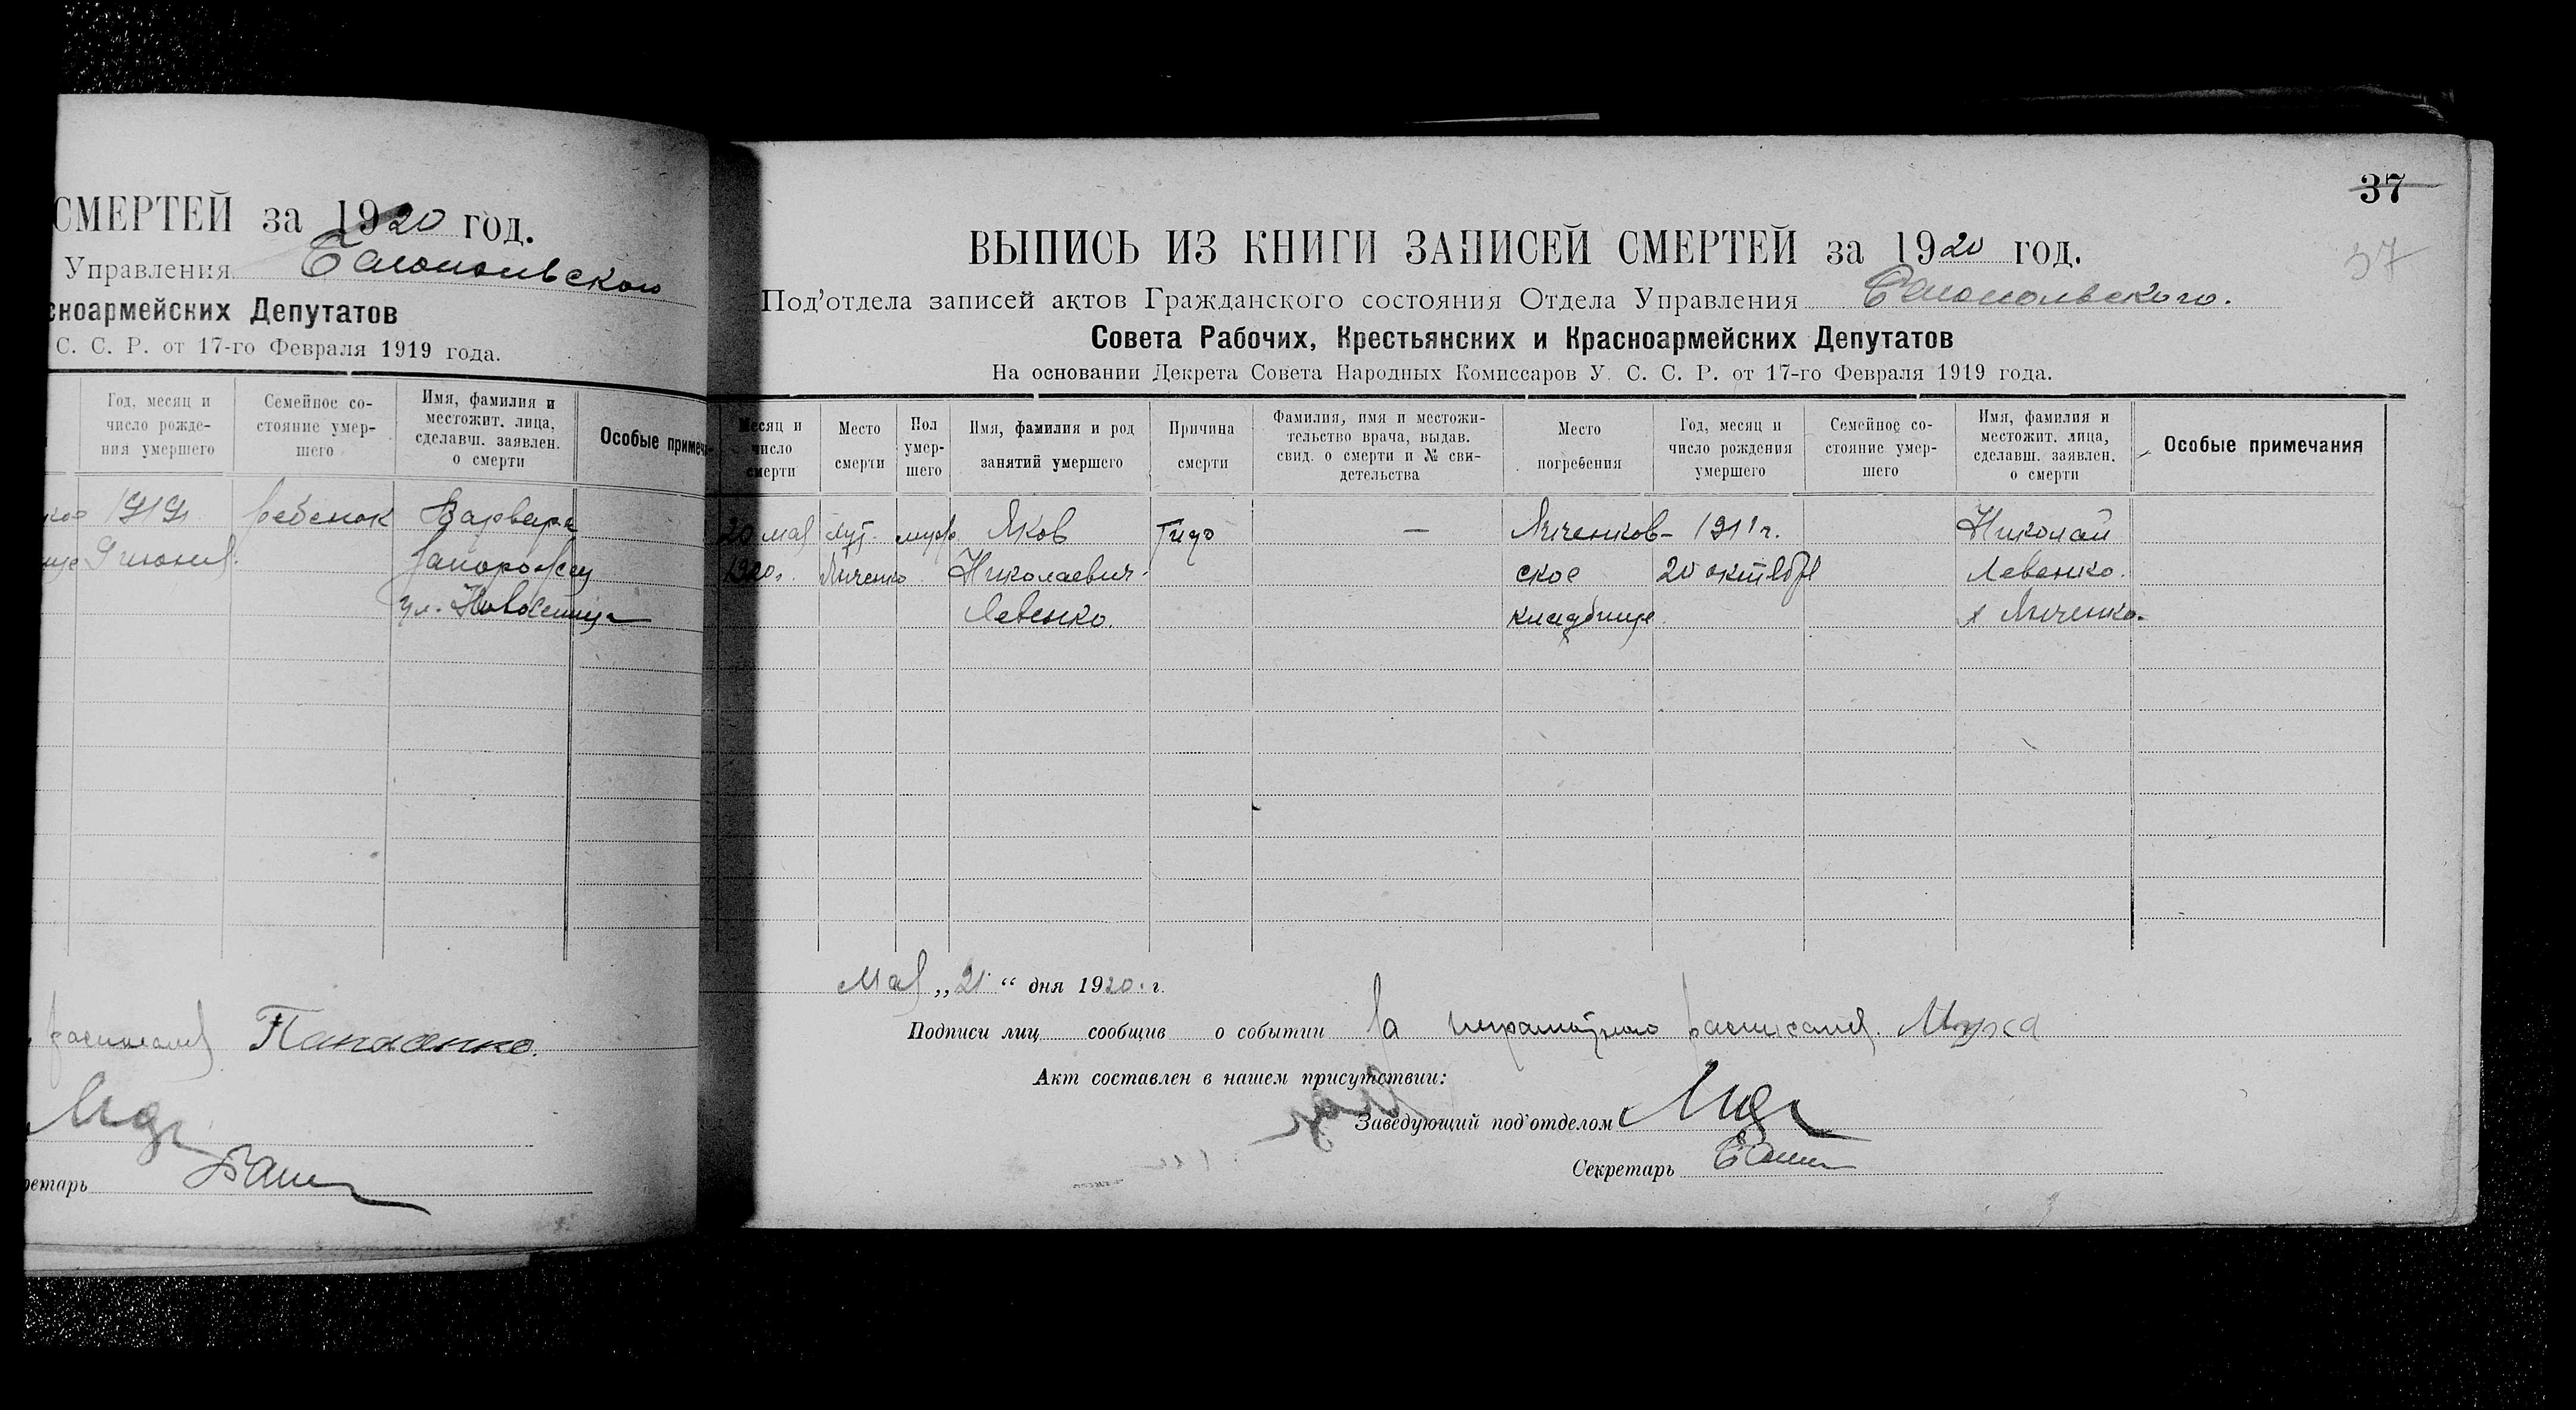 СМЕРТЕЙ за 1920 год.
Управления Белопольского
сноармейских Депутатов
С. С. Р. от 17-го Февраля 1919 года.
Год, месяц и число рождения умершего
Семейное состояние умершего
Имя, фамилия и местожит. лица, сделавш. заявлен. о смерти
Особые примеча-
1919 ребенок Варвара
9 июня Запорожец
ул. Новоселица
расписался Панасенко.
ретарь
37
37
ВЫПИСЬ ИЗ КНИГИ ЗАПИСЕЙ СМЕРТЕЙ за 1920 год.
Под'отдела записей актов Гражданского состояния Отдела Управления Белопольского.
Совета Рабочих, Крестьянских и Красноармейских Депутатов
На основании Декрета Совета Народных Комиссаров У. С. С. Р. от 17-го Февраля 1919 года.
Месяц и число смерти
Место смерти
Пол умершего
Имя, фамилия и род занятий умершего
Причина смерти
Фамилия, имя и местожительство врача, выдав. свид. о смерти и № свидетельства
Место погребения
Год, месяц и число рождения умершего
Семейное состояние умер- шего
Имя, фамилия и местожит. лица, сделавш. заявлен. о смерти
Особые примечания
20 мая хут. Яков — 1911 г. Николай
1920 г. Николаевич ское 20 октября Левенко.
Левенко. кладбище
Мая „21“ дня 1920 г.
Подписи лиц сообщив о событии За неграмотного расписался Муха
Акт составлен в нашем присутствии:
Заведующий под'отделом
Секретарь